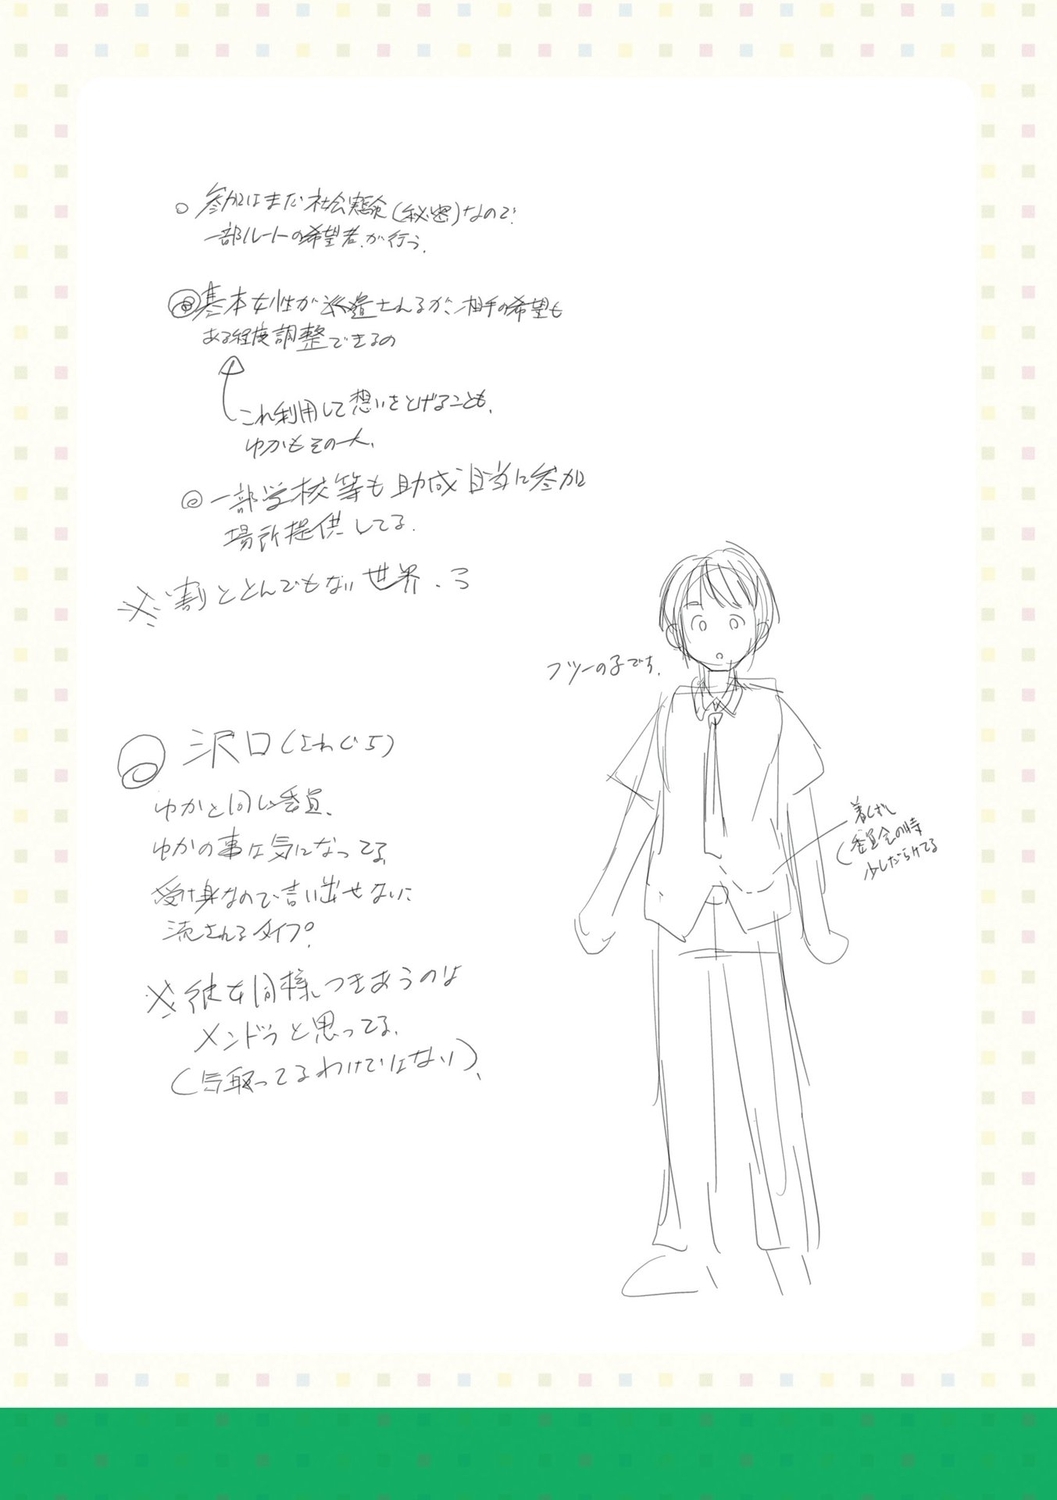 ○ 参加はまだ社会実験(秘密)なので
一部ルートの希望者が行う。
◎基本女性が派遣されるが、相手の希望も
ある程度調整できるの
これ利用して想いをとげることも。
ゆかもその一人。
◎一部学校等も助成目当に参加
場所提供してる。
※割ととんでもない世界。
フツーの子です。
◎ 沢口(さわぐち)
ゆかと同じ委員、
ゆかの事は気になってる
受け身なので言い出せない
流されるタイプ。
着くずし
(委員会の時
少しだらけてる
※彼も同様、つきあうのは
メンドウと思ってる。
(気取ってるわけではない)、